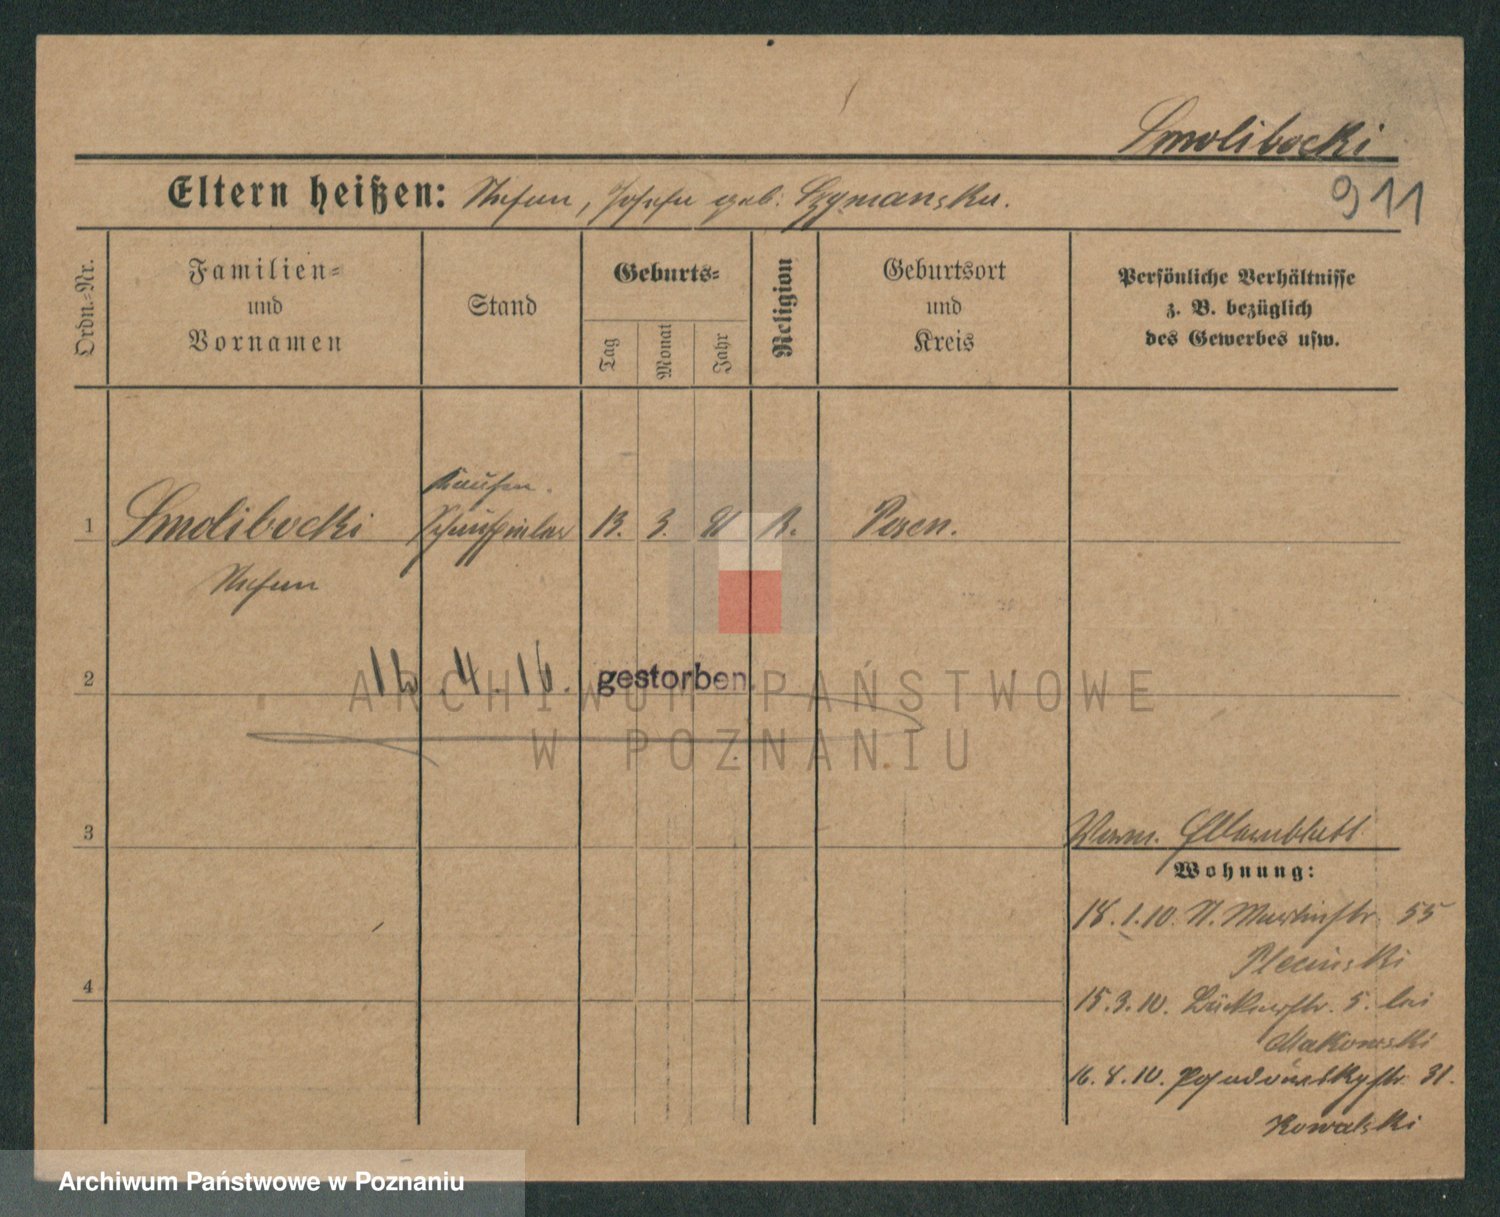 Smolibocki
Eltern heißen: Stefan, Josefa geb. Szymanska.
911
Ordn.-Nr.
Familien-
und
Vornamen
Stand
Geburts-
Tag
Monat
Jahr
Religion
Geburtsort
und
Kreis
Persönliche Verhältnisse
z. B. bezüglich
des Gewerbes usw.
Kaufm.
1 Smolibocki 13. 3. Posen.
Stefan
2 4. 16. gestorben.
ARCHIWUM PAŃSTWOWE
W POZNANIU
3
Wohnung:
18.1.10. St. Martinstr. 55
4
15.3.10. 5. bei
Makowski
16.8.10. 31.
Kowalski
Archiwum Państwowe w Poznaniu